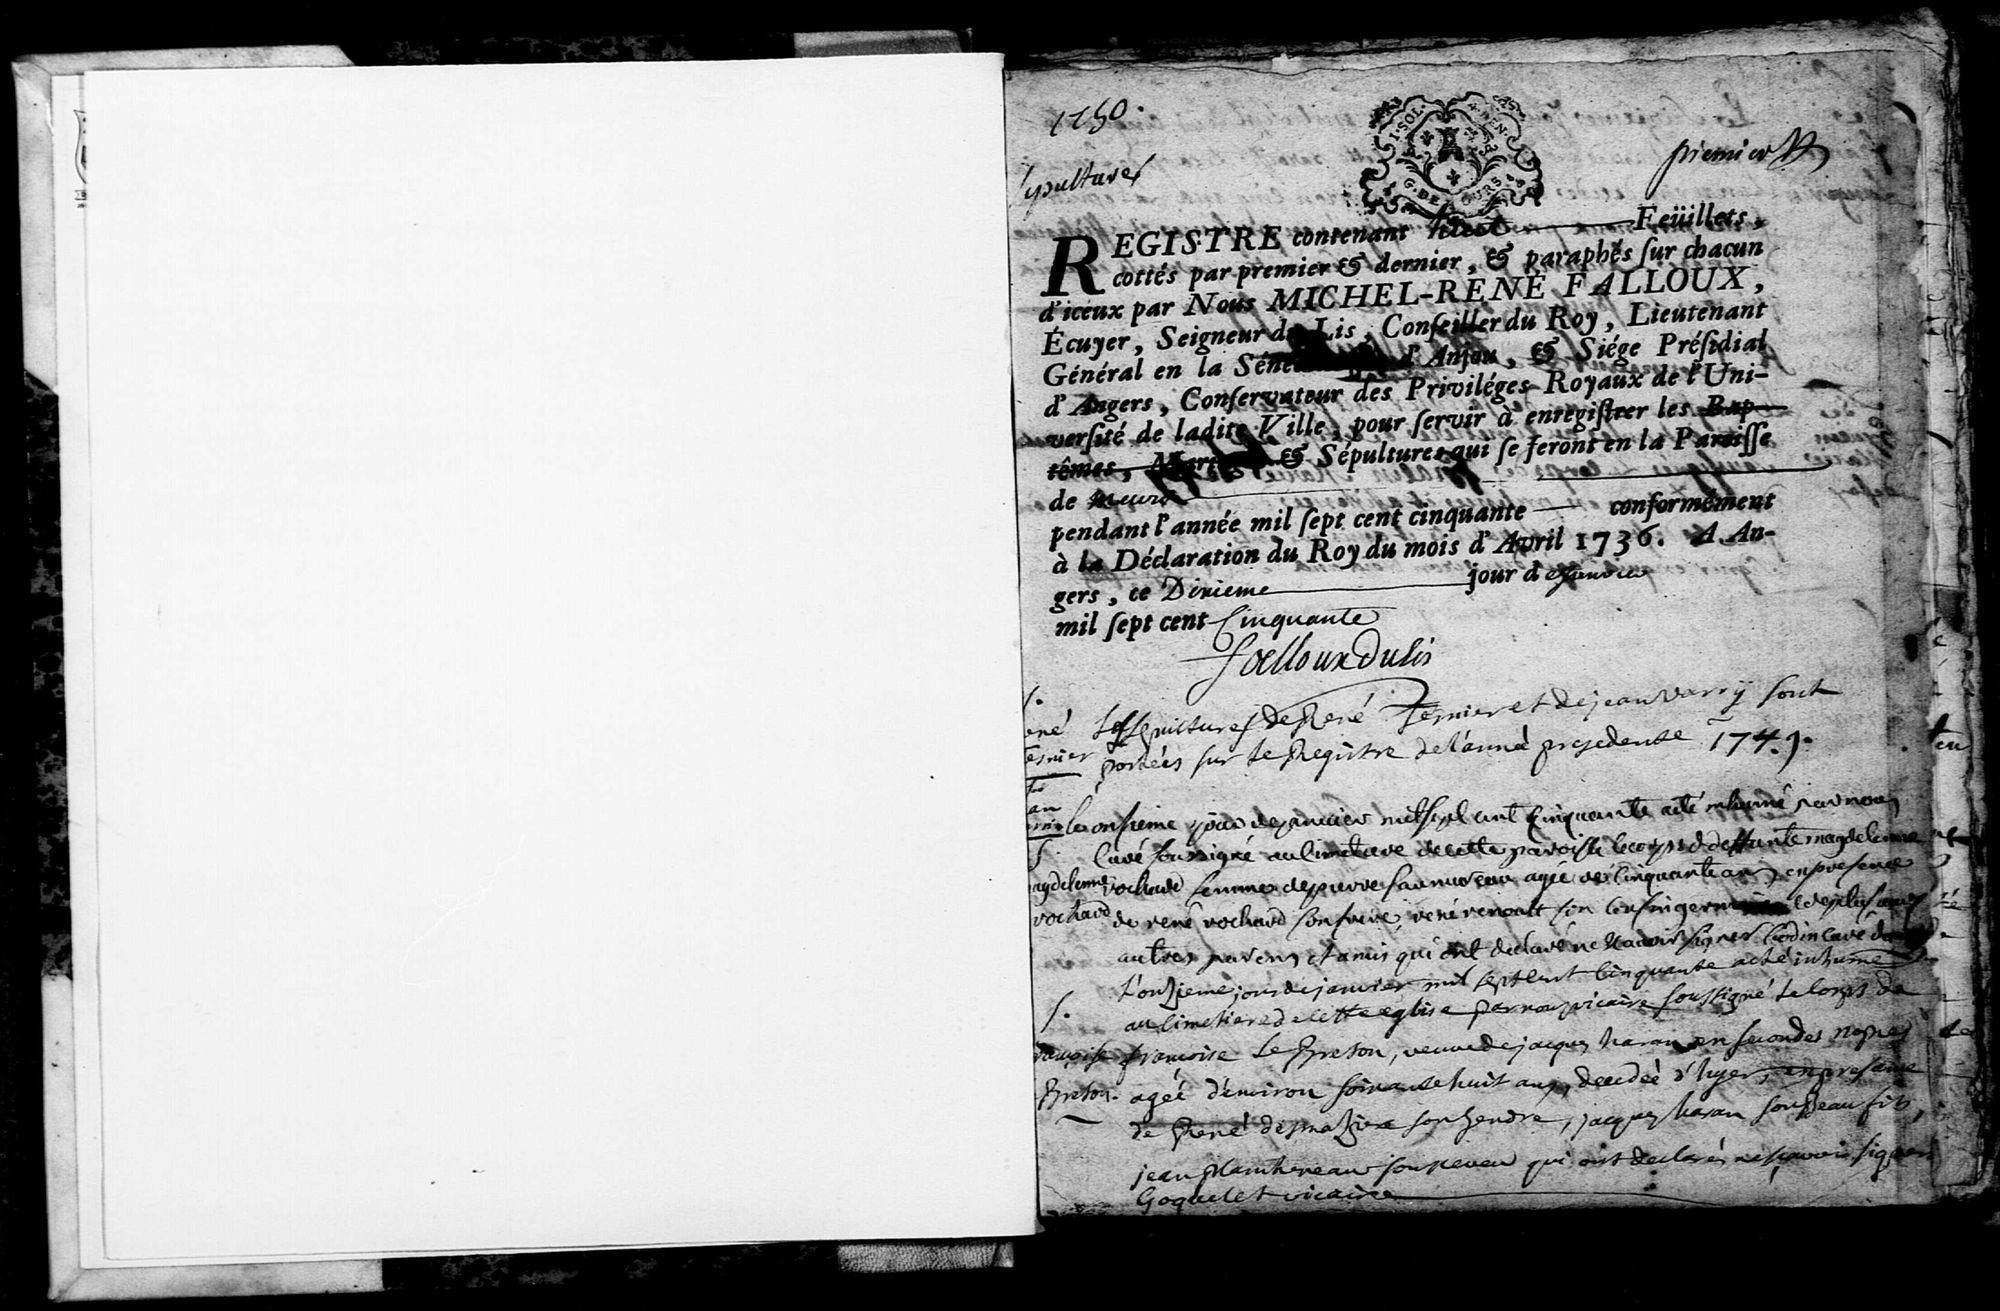 1750.
I. SOL. 4. DEN.
G. DE TOURS
premier
sepultures
REGISTRE contenant huit Feüillets,
cottés par premier & dernier, & paraphés sur chacun
d'iceux par Nous MICHEL-RENÉ FALLOUX,
Écuyer, Seigneur du Lis, Conseiller du Roy, Lieutenant
Général en la Séné d'Anjou, & Siége Présidial
d'Angers, Conservateur des Priviléges Royaux de l'Uni-
versité de ladite Ville, pour servir à enregistrer les Bap-
têmes, & Sépultures qui se feront en la Paroisse
de meurs
pendant l'année mil sept cent cinquante conformément
à la Déclaration du Roy du mois d'Avril 1736. A An-
gers, ce Dixieme jour de Janvier
mil sept cent Cinquante
Falloux Dulis
S.
René Les sepultures de René Tesnier et de jean varry sont
Tesnier portées sur le Registre de l'année precedente 1749.
et
jean
Le onsieme jour de janvier mil sept cent cinquante a eté inhumé par nous
S. Curé soussigné au cimetiere de cette paroisse le corps de deffunte magdelenne
magdelenne rochard femme de pierre agée de cinquante ans, en presence
rochard de rené rochard son frere, rené renoult son cousin germain et de plusieurs
autres parens et amis, qui ont declaré ne scavoir signer
L'onzieme jour de janvier mil sept cent cinquante a eté inhumé
S. au cimetiere de cette eglise par nous vicaire soussigné le corps de
françoise françoise Le Breton, veuve de jacques haran en secondes nopces
Breton. agée d'environ soixante huit ans, decedée d'hyer, en presence
de René desmaziere son gendre, jacques haran son beau fils,
jean son neveu qui ont declarés ne scavoir signer
Goquelet vicaire